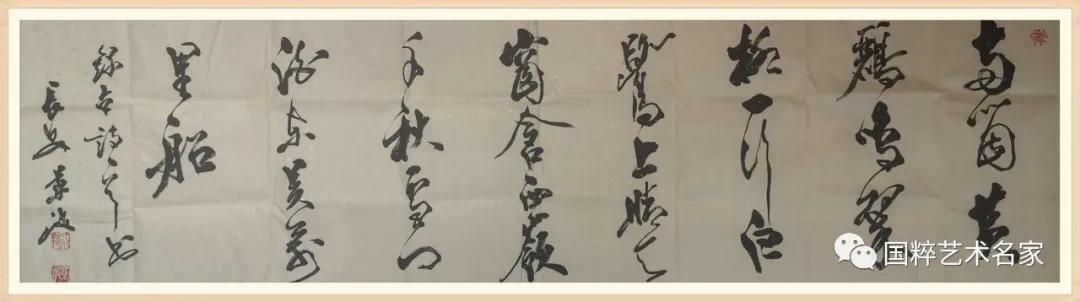 两箇黄
鸝鸣翠
柳一行白
鷺上晴天
窗含西嶺
千秋雪门
泊东吴萬
里船
録古詩一首
长安
国粹艺术名家